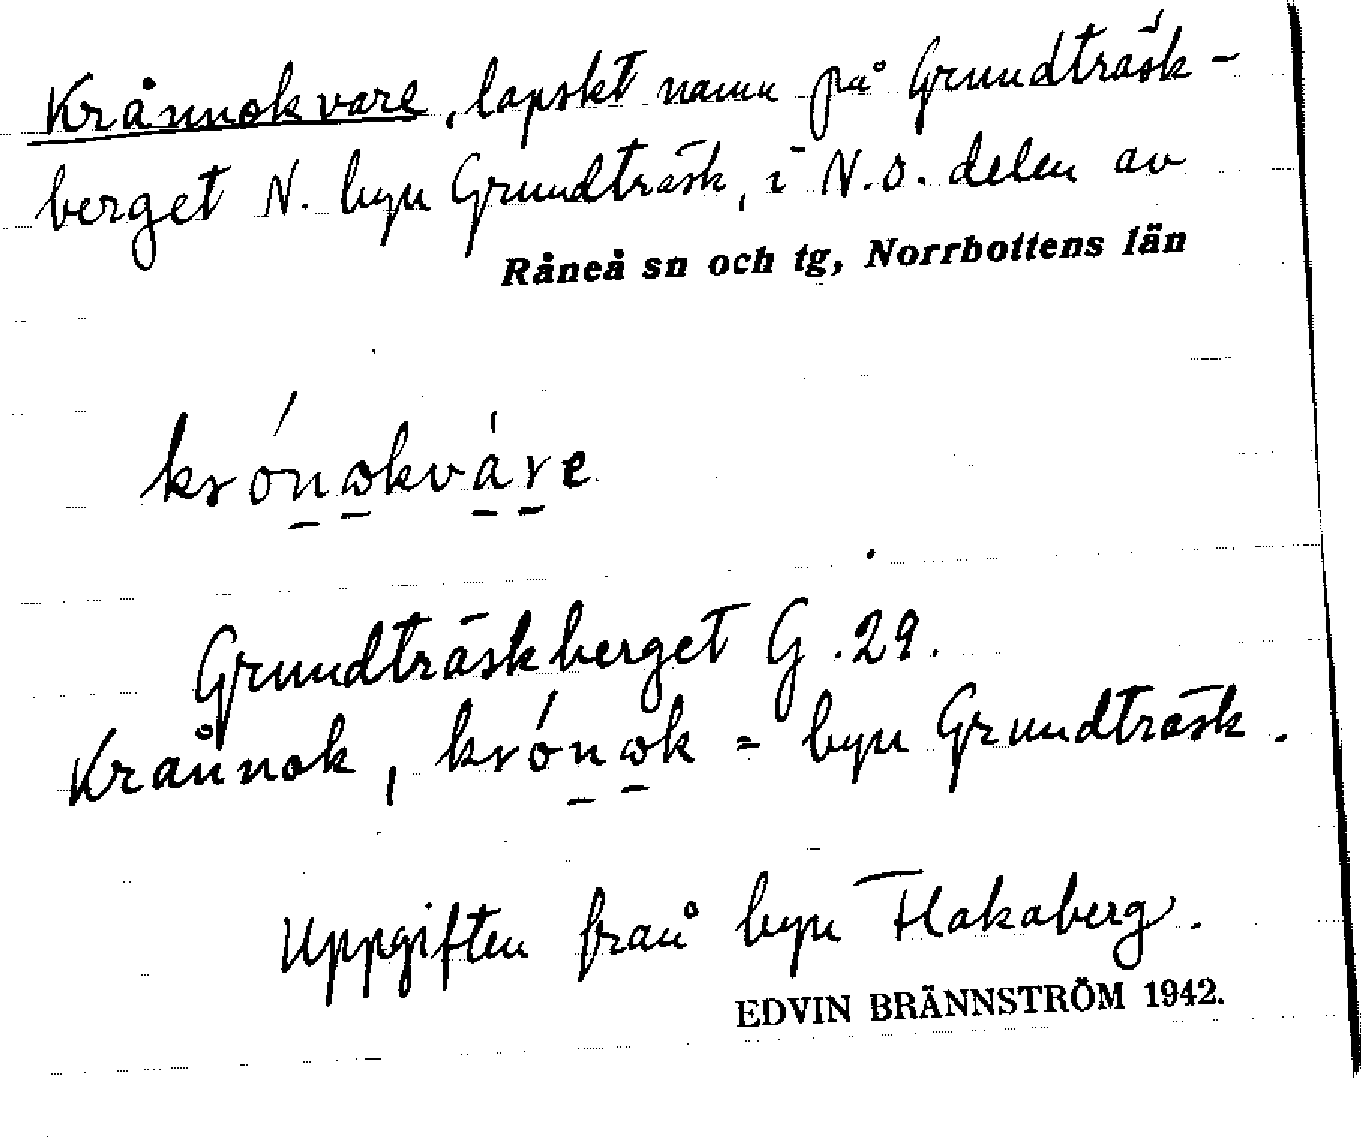 Krånnokvare, lapskt namn på Grundträsk-
berget N. byn Grundträsk, i N.O. delen av
Råneå sn och tg, Norrbottens län
krónωkváre
Grundträskberget G.29.
Krånnok, krónωk = byn Grundträsk.
Uppgiften från byn Flakaberg.
EDVIN BRÄNNSTRÖM 1942.